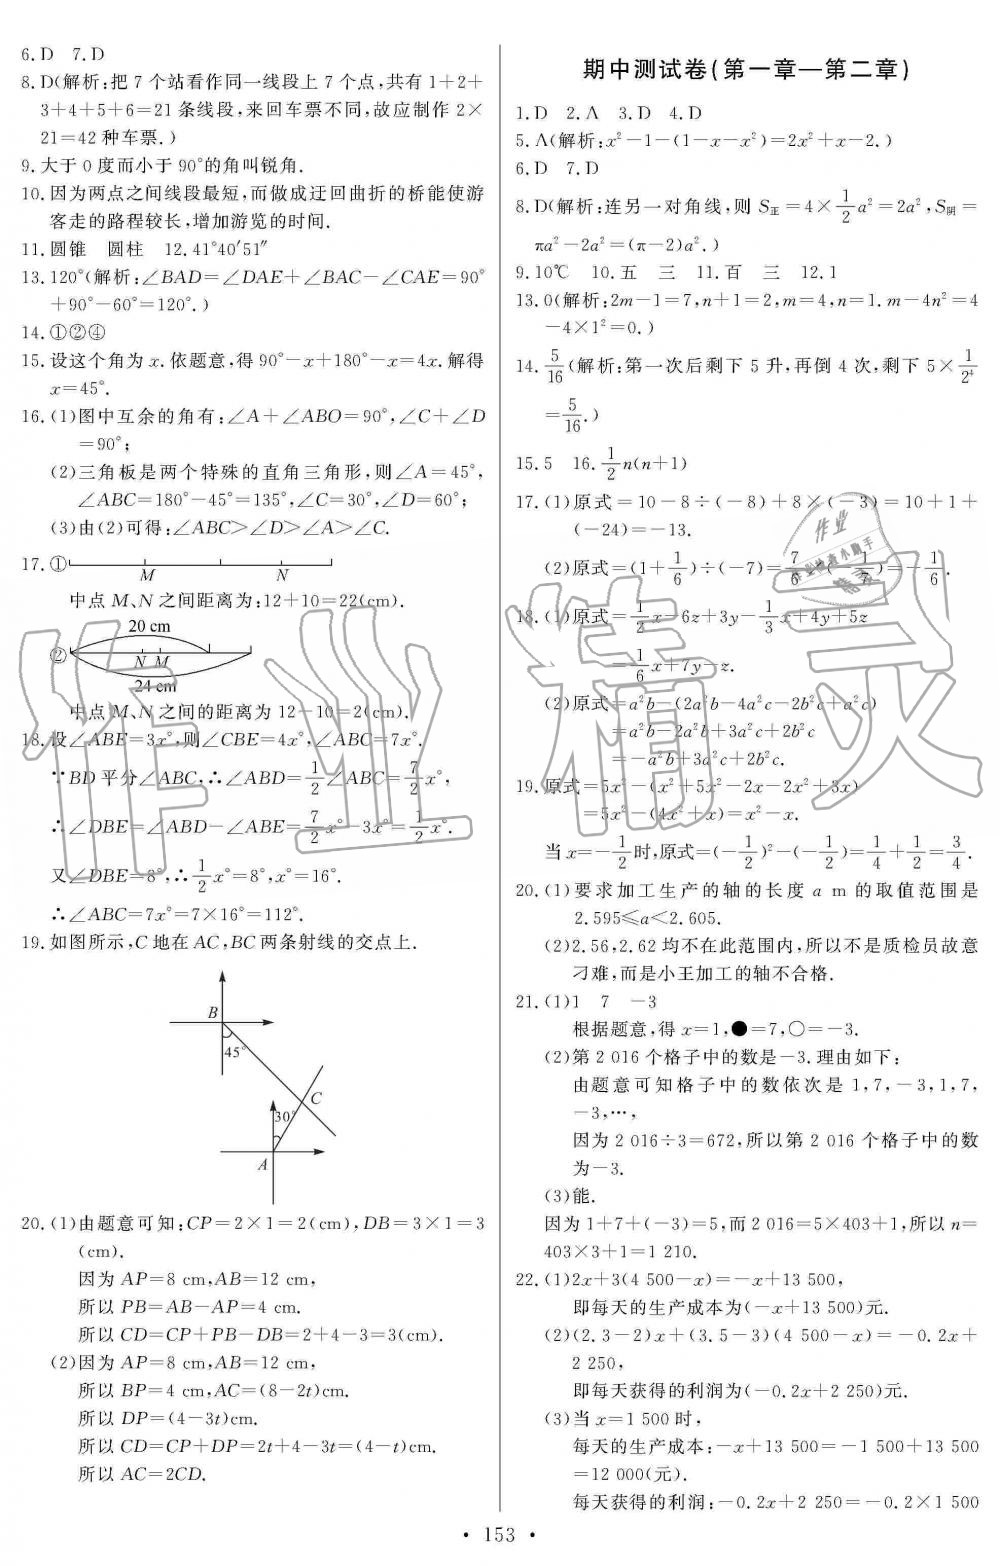 6.D 7.D
8.D(解析:把 7 个站看作同一线段上 7 个点,共有 1+2+
3+4+5+6=21 条线段,来回车票不同,故应制作 2×
21=42 种车票.)
9.大于 0 度而小于 90°的角叫锐角.
10.因为两点之间线段最短,而做成迂回曲折的桥能使游
客走的路程较长,增加游览的时间.
11.圆锥 圆柱 12.41°40′51″
13.120°(解析:∠BAD=∠DAE+∠BAC-∠CAE=90°
+90°-60°=120°.)
14.①②④
15.设这个角为 x.依题意,得 90°-x+180°-x=4x.解得
x=45°.
16.(1)图中互余的角有:∠A+∠ABO=90°,∠C+∠D
=90°;
(2)三角板是两个特殊的直角三角形,则∠A=45°,
∠ABC=180°-45°=135°,∠C=30°,∠D=60°;
(3)由(2)可得:∠ABC>∠D>∠A>∠C.
17.①
M N
中点 M、N 之间距离为:12+10=22(cm).
20 cm
② N M
24 cm
中点 M、N 之间的距离为 12-10=2(cm).
18.设∠ABE=3x°,则∠CBE=4x°,∠ABC=7x°.
∵BD 平分∠ABC,∴∠ABD=1/2∠ABC=7/2x°,
∴∠DBE=∠ABD-∠ABE=7/2x°-3x°=1/2x°.
又∠DBE=8°,∴1/2x°=8°,x°=16°.
∴∠ABC=7x°=7×16°=112°.
19.如图所示,C 地在 AC,BC 两条射线的交点上.
B
45°
C
30°
A
20.(1)由题意可知:CP=2×1=2(cm),DB=3×1=3
(cm).
因为 AP=8 cm,AB=12 cm,
所以 PB=AB-AP=4 cm.
所以 CD=CP+PB-DB=2+4-3=3(cm).
(2)因为 AP=8 cm,AB=12 cm,
所以 BP=4 cm,AC=(8-2t)cm.
所以 DP=(4-3t)cm.
所以 CD=CP+DP=2t+4-3t=(4-t)cm.
所以 AC=2CD.
期中测试卷(第一章—第二章)
1.D 2.A 3.D 4.D
5.A(解析:x²-1-(1-x-x²)=2x²+x-2.)
6.D 7.D
8.D(解析:连另一对角线,则 S正=4×1/2a²=2a²,S阴=
πa²-2a²=(π-2)a².)
9.10℃ 10.五 三 11.百 三 12.1
13.0(解析:2m-1=7,n+1=2,m=4,n=1.m-4n²=4
-4×1²=0.)
14.5/16(解析:第一次后剩下 5 升,再倒 4 次,剩下 5×1/2⁴
=5/16.)
15.5 16.1/2n(n+1)
17.(1)原式=10-8÷(-8)+8×(-3)=10+1+
(-24)=-13.
(2)原式=(1+1/6)÷(-7)=7/6×(-1/7)=-1/6.
18.(1)原式=1/2x-6z+3y-1/3x+4y+5z
=1/6x+7y-z.
(2)原式=a²b-(2a²b-4a²c-2b²c+a²c)
=a²b-2a²b+3a²c+2b²c
=-a²b+3a²c+2b²c.
19.原式=5x²-(x²+5x²-2x-2x²+3x)
=5x²-(4x²+x)=x²-x.
当 x=-1/2时,原式=(-1/2)²-(-1/2)=1/4+1/2=3/4.
20.(1)要求加工生产的轴的长度 a m 的取值范围是
2.595≤a<2.605.
(2)2.56,2.62 均不在此范围内,所以不是质检员故意
刁难,而是小王加工的轴不合格.
21.(1)1 7 -3
根据题意,得 x=1,●=7,○=-3.
(2)第 2 016 个格子中的数是-3.理由如下:
由题意可知格子中的数依次是 1,7,-3,1,7,
-3,…,
因为 2 016÷3=672,所以第 2 016 个格子中的数
为-3.
(3)能.
因为 1+7+(-3)=5,而 2 016=5×403+1,所以 n=
403×3+1=1 210.
22.(1)2x+3(4 500-x)=-x+13 500,
即每天的生产成本为(-x+13 500)元.
(2)(2.3-2)x+(3.5-3)(4 500-x)=-0.2x+
2 250,
即每天获得的利润为(-0.2x+2 250)元.
(3)当 x=1 500 时,
每天的生产成本:-x+13 500=-1 500+13 500
=12 000(元).
每天获得的利润:-0.2x+2 250=-0.2×1 500
• 153 •
作业精灵
作业